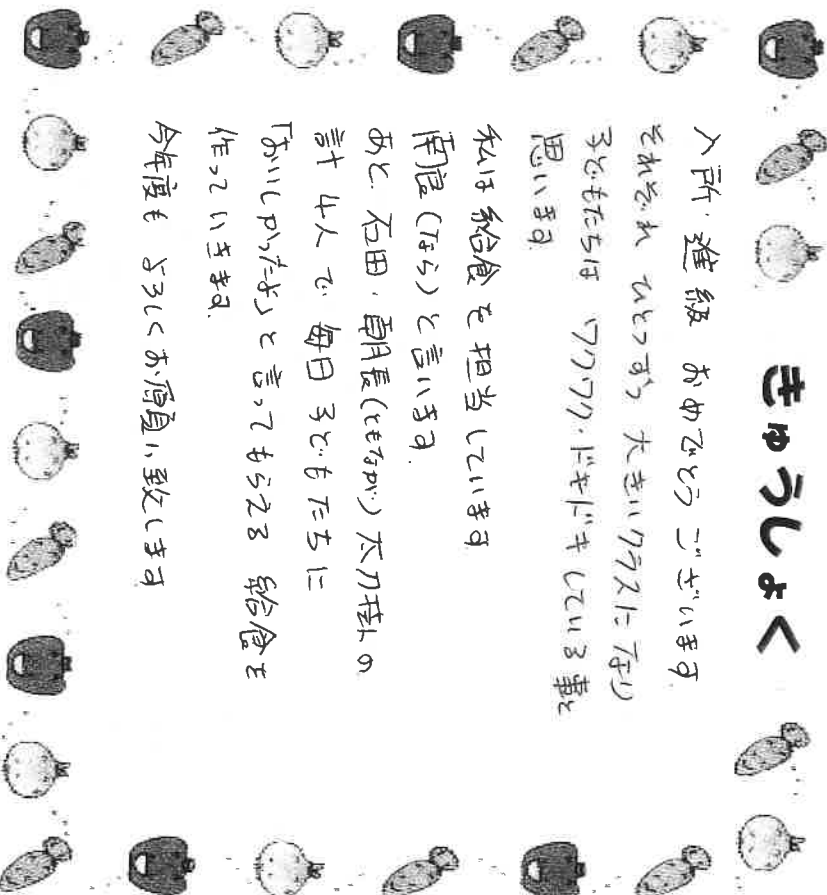 きゅうしょく
入所・進級 おめでとうございます
それぞれ ひとつずつ 大きいクラスになり
子どもたちは ワクワク・ドキドキしている事と
思います
私は給食を担当しています
(なら)と言います。
あと、石田・朝長(ともなが)の
計4人で 毎日 子どもたちに
「おいしかったよ」と言ってもらえる 給食を
作っていきます。
今年度も よろしくお願い致します